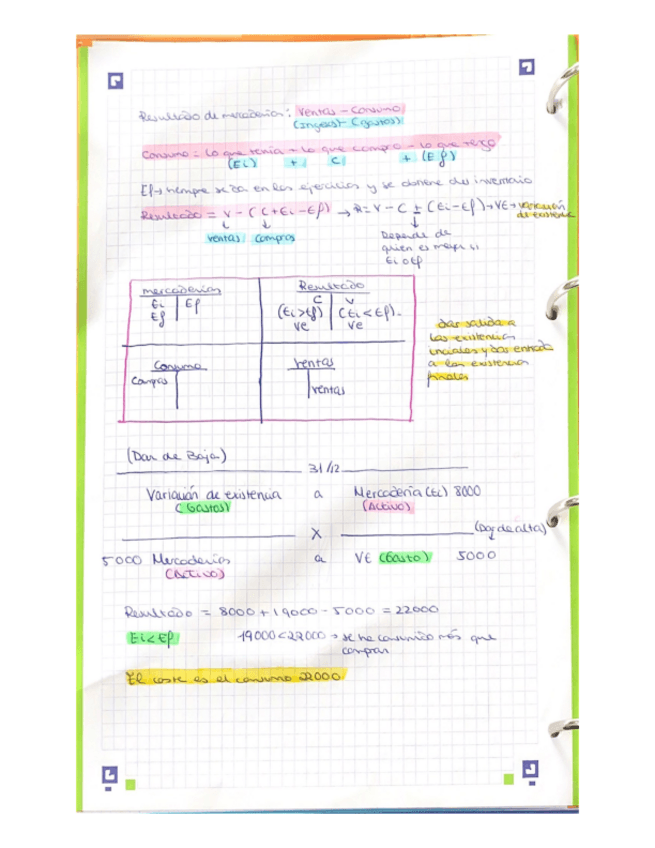 Resultado de mercaderías: Ventas - Consumo
(Ingresos) - (Gastos)
Consumo = Lo que tenía + lo que compro - lo que tengo
(Ei) + C + (Ef)
Ef → siempre se da en los ejercicios y se obtiene del inventario
Resultado = V - (C+Ei-Ef) → R= V - C ± (Ei-Ef) → VE → variación de existencia
ventas compras
Depende de
quien es mayor si
Ei o Ef
mercaderías
Ei Ef
Ef
Resultado
C V
(Ei>Ef) (Ei<Ef)
VE VE
Consumo
Compras
Ventas
Ventas
dar salida a
las existencias
iniciales y das entrada
a las existencia
finales
(Dar de Baja)
31/12
Variación de existencia a Mercadería (Ei) 8000
(Gastos) (Activo)
X (Dar de alta)
5000 Mercaderías a VE (Gasto) 5000
(Activo)
Resultado = 8000 + 19000 - 5000 = 22000
Ei<Ef 19000<22000 → se ha consumido más que
compran
El coste es el consumo 22000